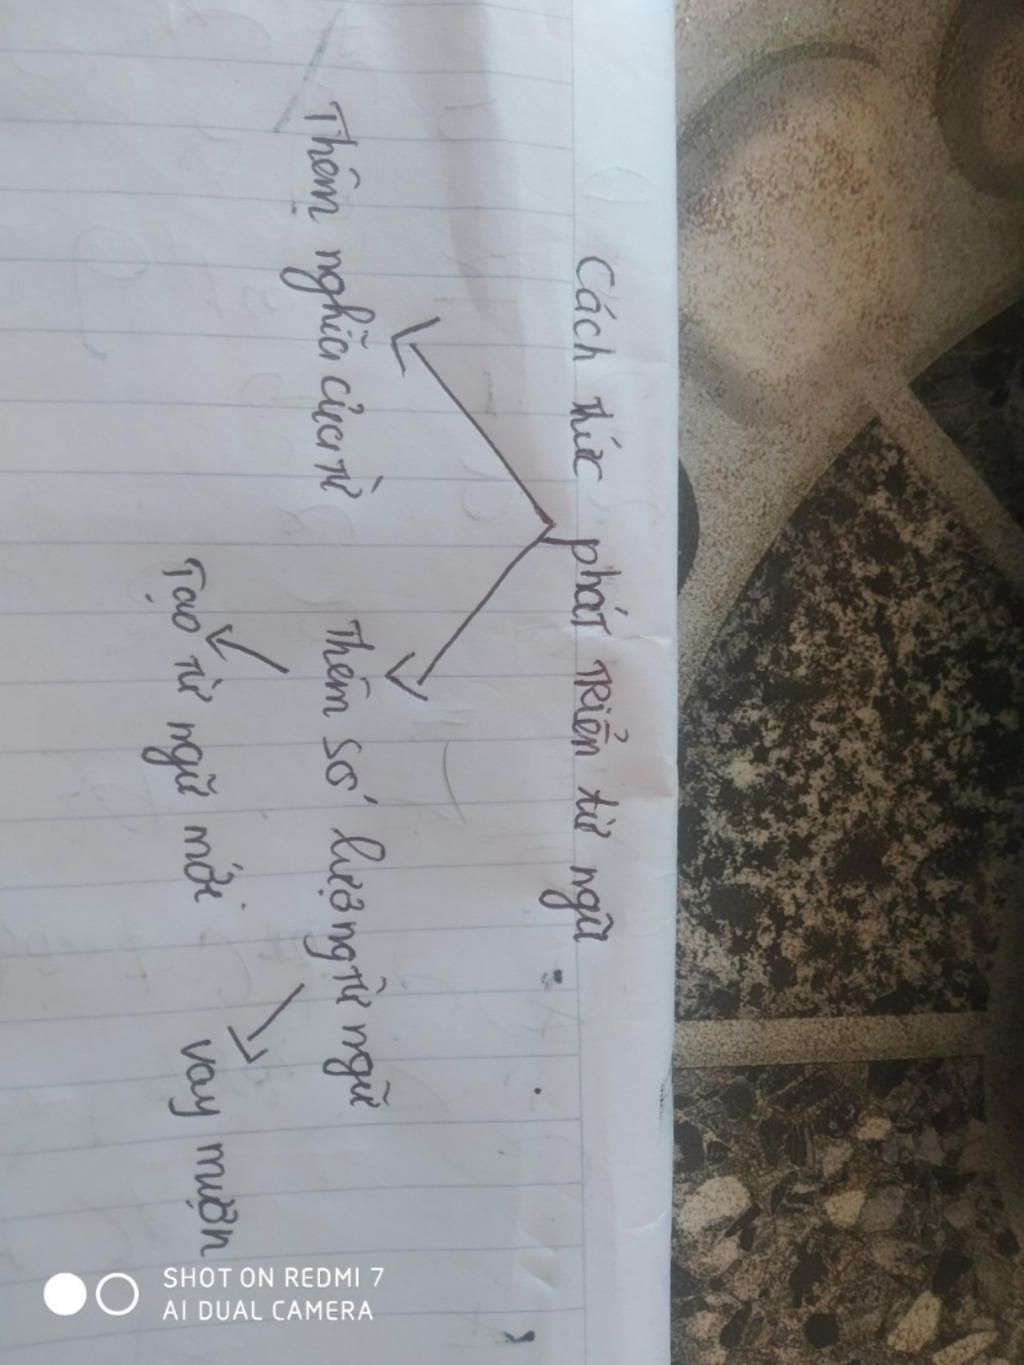 Cách thức phát triển từ ngữ
Thêm nghĩa của từ
Thêm số lượng từ ngữ
Tạo từ ngữ mới
vay mượn
SHOT ON REDMI 7
AI DUAL CAMERA